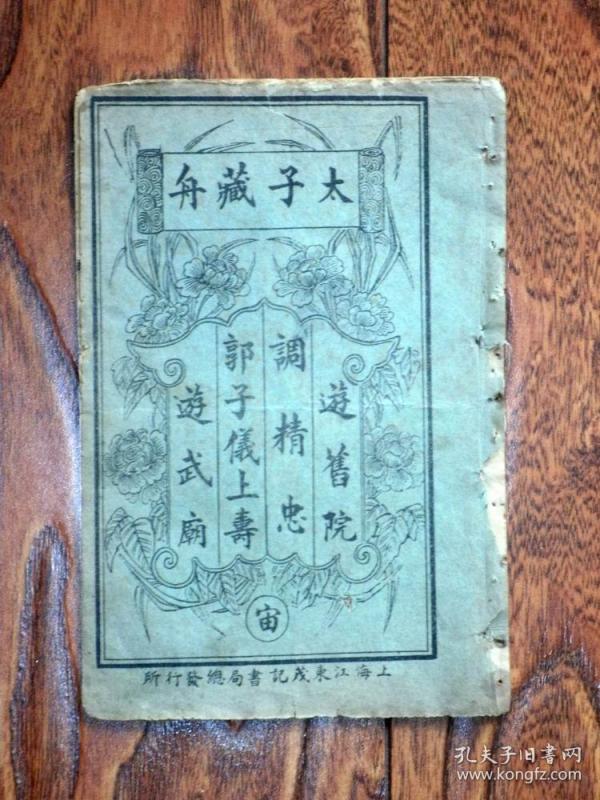 太子藏舟
遊舊院
調精忠
郭子儀上壽
遊武廟
宙
上海江東茂記書局總發行所
孔夫子旧書网
www.kongfz.com